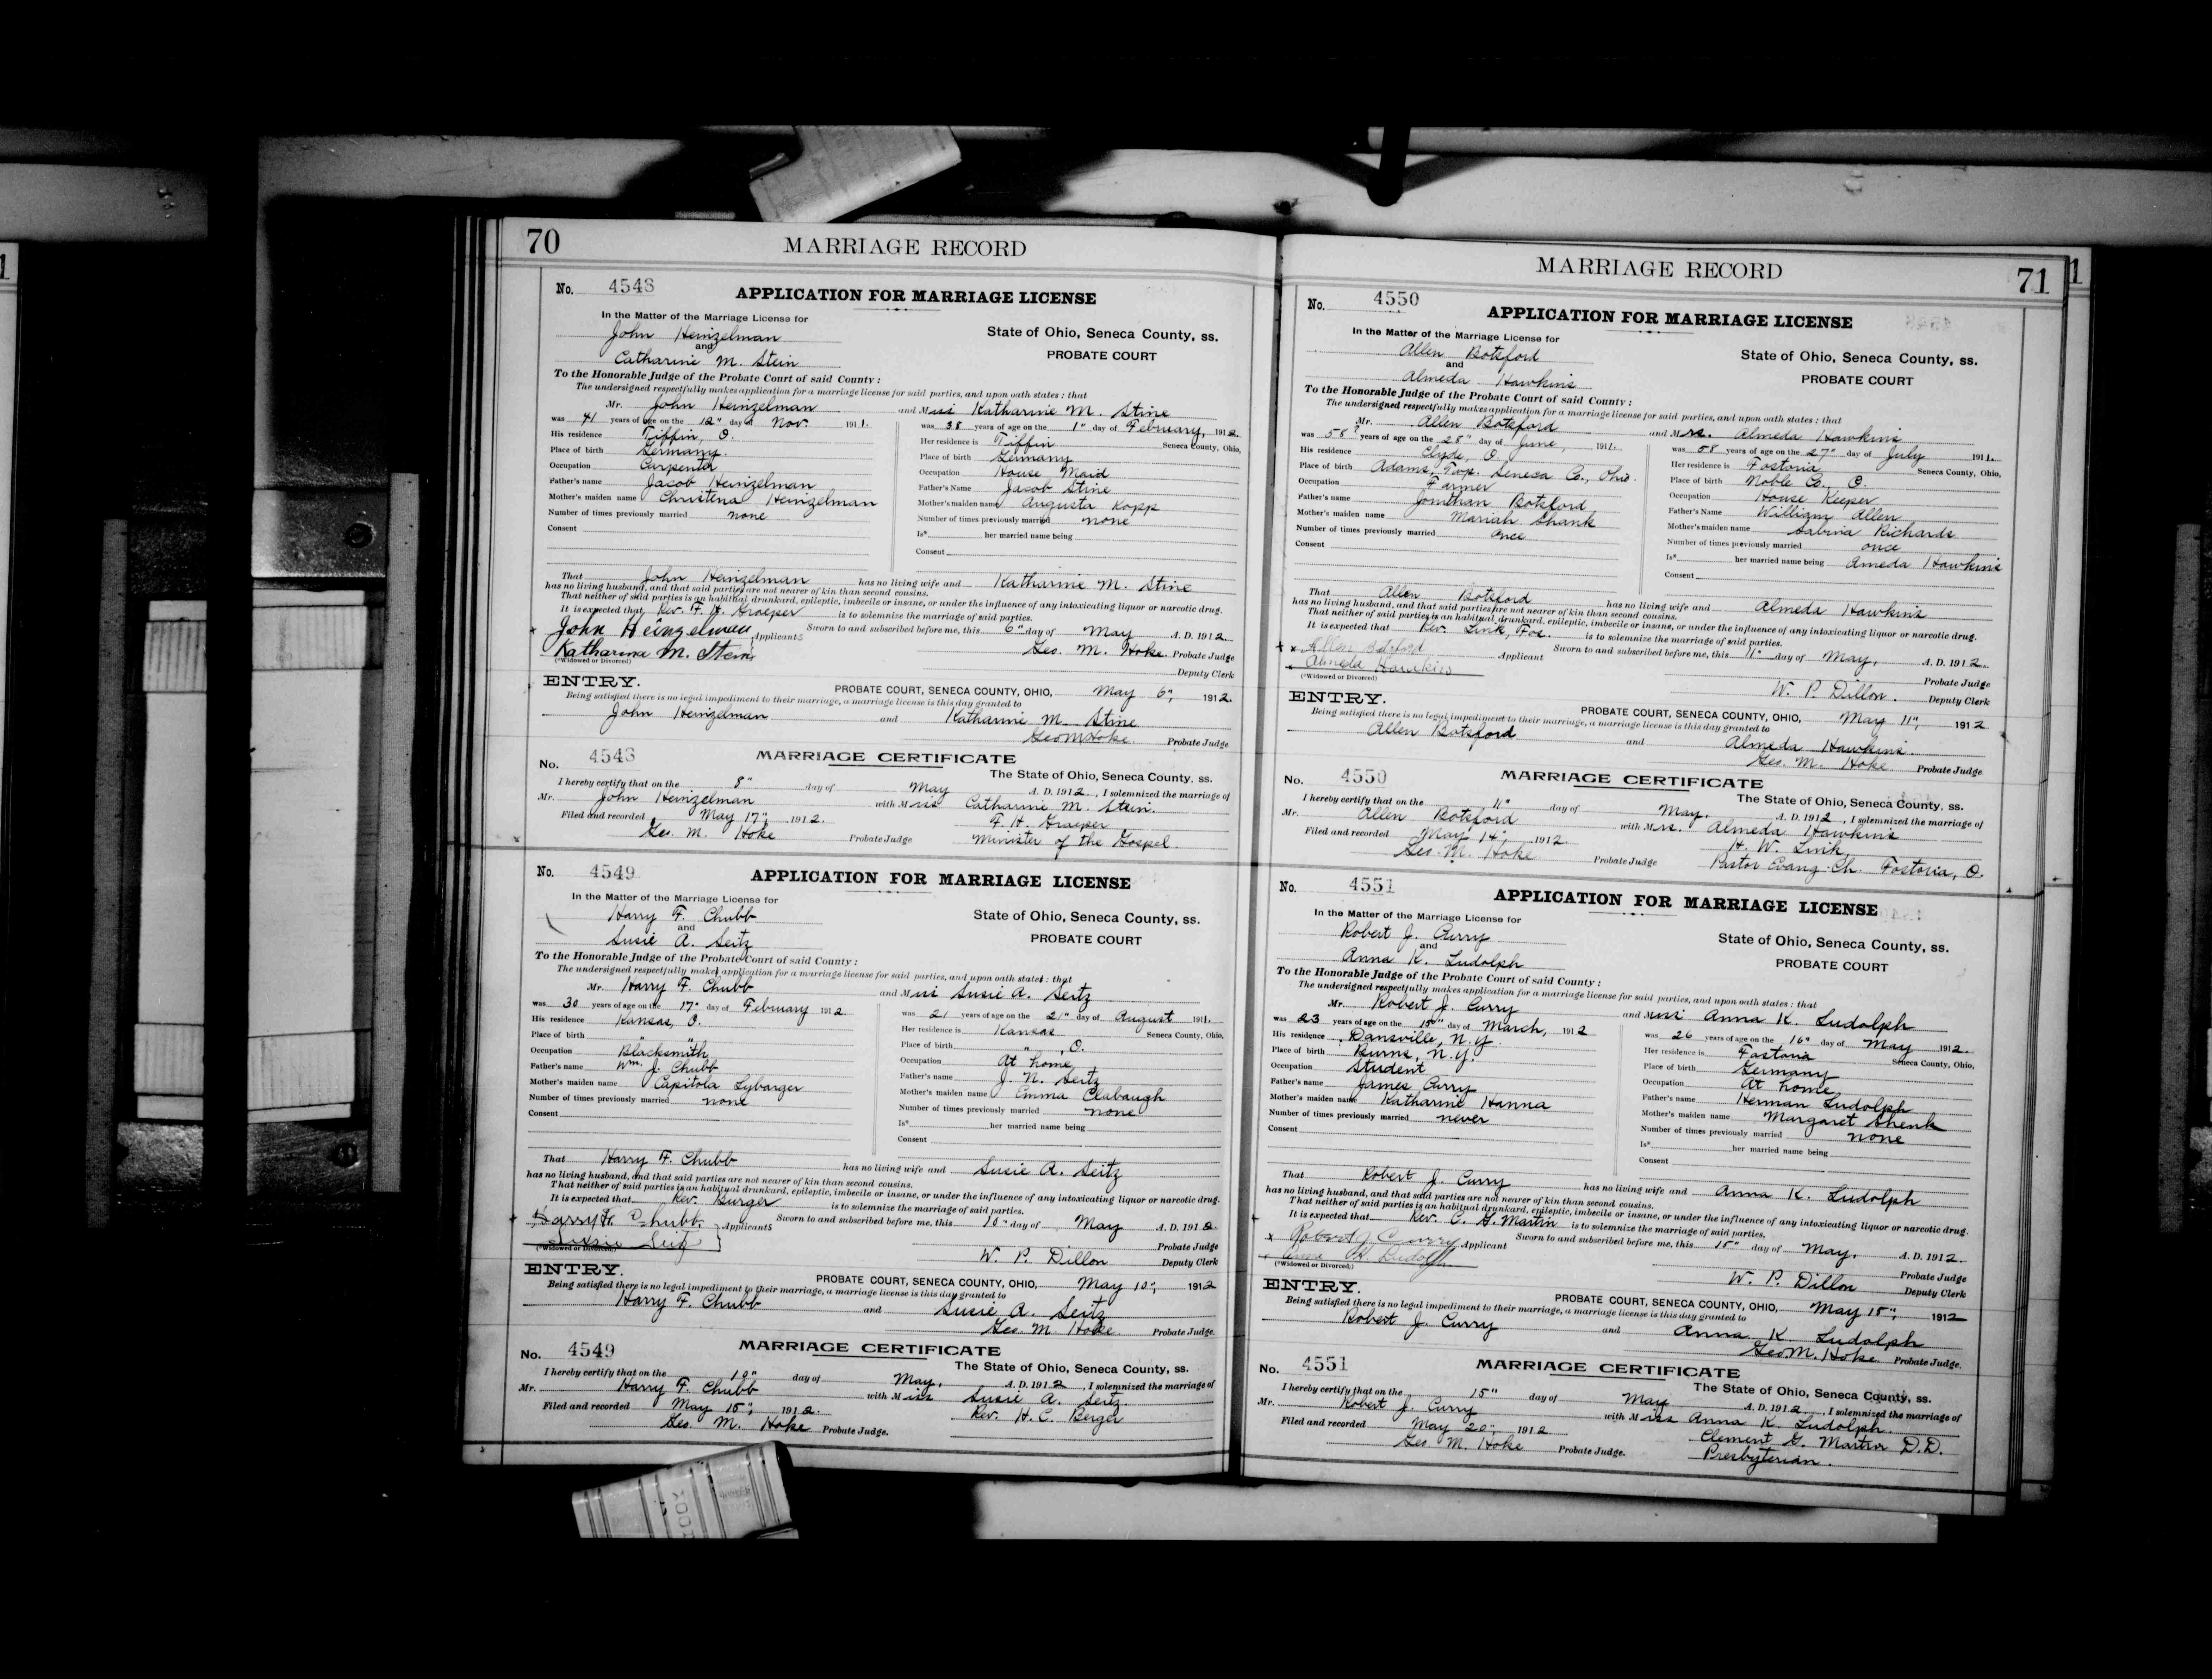 70
MARRIAGE RECORD
No. 4548
APPLICATION FOR MARRIAGE LICENSE
In the Matter of the Marriage License for
John Heinzelman
and
Catharine M. Stein
State of Ohio, Seneca County, ss.
PROBATE COURT
To the Honorable Judge of the Probate Court of said County:
The undersigned respectfully makes application for a marriage license for said parties, and upon oath states: that
Mr. John Heinzelman and Miss Katharine M. Stine
was 41 years of age on the 12" day of Nov. 1911. was 38 years of age on the 1" day of February, 1912.
His residence Tiffin, O. Her residence is Tiffin Seneca County, Ohio,
Place of birth Germany. Place of birth Germany
Occupation Carpenter Occupation House Maid
Father's name Jacob Heinzelman Father's Name Jacob Stine
Mother's maiden name Christena Heinzelman Mother's maiden name Augusta Kopp
Number of times previously married none Number of times previously married none
Consent Is* her married name being
Consent
That John Heinzelman has no living wife and Katharine M. Stine
has no living husband, and that said parties are not nearer of kin than second cousins.
That neither of said parties is an habitual drunkard, epileptic, imbecile or insane, or under the influence of any intoxicating liquor or narcotic drug.
It is expected that Rev. F. H. Graeper is to solemnize the marriage of said parties.
John Heinzelman Applicants Sworn to and subscribed before me, this 6" day of May A. D. 1912
Katharina M. Stein Geo. M. Hoke. Probate Judge
(*Widowed or Divorced) Deputy Clerk
ENTRY. PROBATE COURT, SENECA COUNTY, OHIO, May 6", 1912.
Being satisfied there is no legal impediment to their marriage, a marriage license is this day granted to
John Heinzelman and Katharine M. Stine
Geo M Hoke. Probate Judge
No. 4548 MARRIAGE CERTIFICATE
The State of Ohio, Seneca County, ss.
I hereby certify that on the 8" day of May A. D. 1912, I solemnized the marriage of
Mr. John Heinzelman with Miss Catharine M. Stein.
Filed and recorded May 17", 1912. F. H. Graeper
Geo. M. Hoke Probate Judge Minister of the Gospel.
No. 4549
APPLICATION FOR MARRIAGE LICENSE
In the Matter of the Marriage License for
Harry F. Chubb
and
Susie A. Seitz
State of Ohio, Seneca County, ss.
PROBATE COURT
To the Honorable Judge of the Probate Court of said County:
The undersigned respectfully makes application for a marriage license for said parties, and upon oath states: that
Mr. Harry F. Chubb and Miss Susie A. Seitz
was 30 years of age on the 17" day of February 1912. was 21 years of age on the 21" day of August 1911.
His residence Kansas, O. Her residence is Kansas Seneca County, Ohio,
Place of birth " " Place of birth " , O.
Occupation Blacksmith Occupation At home
Father's name Wm. J. Chubb Father's name J. N. Seitz
Mother's maiden name Capitola Lybarger Mother's maiden name Emma Clabaugh
Number of times previously married none Number of times previously married none
Consent Is* her married name being
Consent
That Harry F. Chubb has no living wife and Susie A. Seitz
has no living husband, and that said parties are not nearer of kin than second cousins.
That neither of said parties is an habitual drunkard, epileptic, imbecile or insane, or under the influence of any intoxicating liquor or narcotic drug.
It is expected that Rev. Burger is to solemnize the marriage of said parties.
Harry F. Chubb Applicants Sworn to and subscribed before me, this 10" day of May A. D. 1912
Susie Seitz Probate Judge
(*Widowed or Divorced) W. P. Dillon Deputy Clerk
ENTRY. PROBATE COURT, SENECA COUNTY, OHIO, May 10", 1912
Being satisfied there is no legal impediment to their marriage, a marriage license is this day granted to
Harry F. Chubb and Susie A. Seitz
Geo. M. Hoke. Probate Judge.
No. 4549 MARRIAGE CERTIFICATE
The State of Ohio, Seneca County, ss.
I hereby certify that on the 10" day of May, A. D. 1912, I solemnized the marriage of
Mr. Harry F. Chubb with Miss Susie A. Seitz.
Filed and recorded May 15", 1912. Rev. H. C. Berger
Geo. M. Hoke Probate Judge.
MARRIAGE RECORD
71
No. 4550
APPLICATION FOR MARRIAGE LICENSE
In the Matter of the Marriage License for
Allen Botsford
and
Almeda Hawkins
State of Ohio, Seneca County, ss.
PROBATE COURT
To the Honorable Judge of the Probate Court of said County:
The undersigned respectfully makes application for a marriage license for said parties, and upon oath states: that
Mr. Allen Botsford and Mrs. Almeda Hawkins
was 58? years of age on the 28" day of June, 1911. was 58 years of age on the 27" day of July 1911.
His residence Clyde, O. Her residence is Fostoria Seneca County, Ohio,
Place of birth Adams, Twp. Seneca Co., Ohio. Place of birth Noble Co., O.
Occupation Farmer Occupation House Keeper
Father's name Jonthan Botsford Father's Name William Allen
Mother's maiden name Mariah Shank Mother's maiden name Sabina Richards
Number of times previously married once Number of times previously married once
Consent Is* her married name being Ameda Hawkins
Consent
That Allen Botsford has no living wife and Almeda Hawkins
has no living husband, and that said parties are not nearer of kin than second cousins.
That neither of said parties is an habitual drunkard, epileptic, imbecile or insane, or under the influence of any intoxicating liquor or narcotic drug.
It is expected that Rev. Link, Fos. is to solemnize the marriage of said parties.
x x Allen Botsford Applicant Sworn to and subscribed before me, this 11" day of May, A. D. 1912.
x Almeda Hawkins Probate Judge
(*Widowed or Divorced) W. P. Dillon. Deputy Clerk
ENTRY. PROBATE COURT, SENECA COUNTY, OHIO, May 11", 1912
Being satisfied there is no legal impediment to their marriage, a marriage license is this day granted to
Allen Botsford and Almeda Hawkins.
Geo. M. Hoke Probate Judge
No. 4550 MARRIAGE CERTIFICATE
The State of Ohio, Seneca County, ss.
I hereby certify that on the 11" day of May, A. D. 1912, I solemnized the marriage of
Mr. Allen Botsford with Mrs. Almeda Hawkins
Filed and recorded May 14", 1912. H. W. Link,
Geo. M. Hoke Probate Judge Pastor Evang. Ch. Fostoria, O.
No. 4551
APPLICATION FOR MARRIAGE LICENSE
In the Matter of the Marriage License for
Robert J. Curry
and
Anna K. Ludolph
State of Ohio, Seneca County, ss.
PROBATE COURT
To the Honorable Judge of the Probate Court of said County:
The undersigned respectfully makes application for a marriage license for said parties, and upon oath states: that
Mr. Robert J. Curry and Miss Anna K. Ludolph
was 23 years of age on the 15" day of March, 1912 was 26 years of age on the 16" day of May 1912.
His residence Dansville, N.Y. Her residence is Fostoria Seneca County, Ohio,
Place of birth Burns, N.Y. Place of birth Germany
Occupation Student Occupation At home
Father's name James Curry Father's name Herman Ludolph
Mother's maiden name Katharine Hanna Mother's maiden name Margaret Shenk
Number of times previously married never Number of times previously married none
Consent Is* her married name being
Consent
That Robert J. Curry has no living wife and Anna K. Ludolph
has no living husband, and that said parties are not nearer of kin than second cousins.
That neither of said parties is an habitual drunkard, epileptic, imbecile or insane, or under the influence of any intoxicating liquor or narcotic drug.
It is expected that Rev. C. G. Martin is to solemnize the marriage of said parties.
x Robert J Curry Applicant Sworn to and subscribed before me, this 15" day of May, A. D. 1912.
x Anna K. Ludolph Probate Judge
(*Widowed or Divorced) W. P. Dillon Deputy Clerk
ENTRY. PROBATE COURT, SENECA COUNTY, OHIO, May 15", 1912
Being satisfied there is no legal impediment to their marriage, a marriage license is this day granted to
Robert J. Curry and Anna K. Ludolph
Geo. M. Hoke. Probate Judge.
No. 4551 MARRIAGE CERTIFICATE
The State of Ohio, Seneca County, ss.
I hereby certify that on the 15" day of May A. D. 1912, I solemnized the marriage of
Mr. Robert J. Curry with Miss Anna K. Ludolph.
Filed and recorded May 20", 1912 Clement G. Martin D.D.
Geo. M. Hoke Probate Judge. Presbyterian.